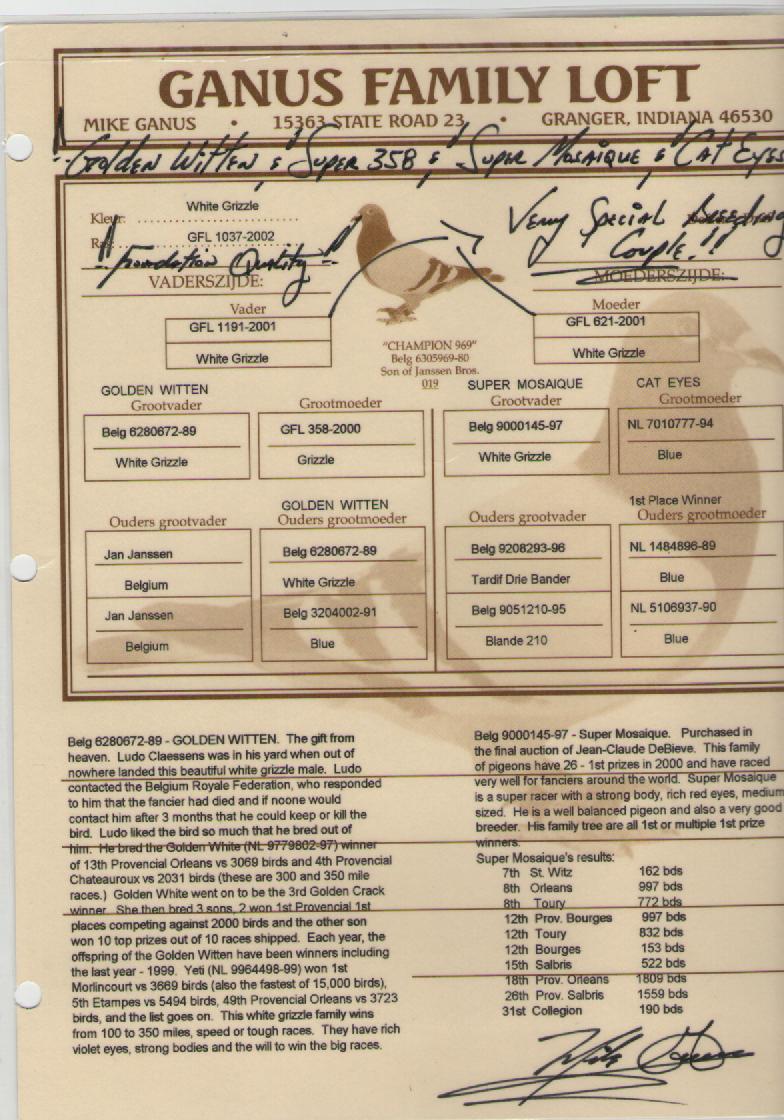 GANUS FAMILY LOFT
MIKE GANUS • 15363 STATE ROAD 23 • GRANGER, INDIANA 46530
"Golden Witten & "Super 358 & "Super Mosaique & "Cat Eyes
White Grizzle
Kleur:
GFL 1037-2002
"Foundation Quality"
Very Special Breeding
Couple!!
VADERSZIJDE:
MOEDERSZIJDE:
Vader
GFL 1191-2001
White Grizzle
Moeder
GFL 621-2001
White Grizzle
"CHAMPION 969"
Belg 6305969-80
Son of Janssen Bros.
019
GOLDEN WITTEN
Grootvader
Belg 6280672-89
White Grizzle
Grootmoeder
GFL 358-2000
Grizzle
SUPER MOSAIQUE
Grootvader
Belg 9000145-97
White Grizzle
CAT EYES
Grootmoeder
NL 7010777-94
Blue
Ouders grootvader
Jan Janssen
Belgium
Jan Janssen
Belgium
GOLDEN WITTEN
Ouders grootmoeder
Belg 6280672-89
White Grizzle
Belg 3204002-91
Blue
Ouders grootvader
Belg 9208293-96
Tardif Drie Bander
Belg 9051210-95
Blande 210
1st Place Winner
Ouders grootmoeder
NL 1484896-89
Blue
NL 5106937-90
Blue
Belg 6280672-89 - GOLDEN WITTEN. The gift from
heaven. Ludo Claessens was in his yard when out of
nowhere landed this beautiful white grizzle male. Ludo
contacted the Belgium Royale Federation, who responded
to him that the fancier had died and if noone would
contact him after 3 months that he could keep or kill the
bird. Ludo liked the bird so much that he bred out of
him. He bred the Golden White (NL 9779802-97) winner
of 13th Provencial Orleans vs 3069 birds and 4th Provencial
Chateauroux vs 2031 birds (these are 300 and 350 mile
races.) Golden White went on to be the 3rd Golden Crack
winner. She then bred 3 sons, 2 won 1st Provencial 1st
places competing against 2000 birds and the other son
won 10 top prizes out of 10 races shipped. Each year, the
offspring of the Golden Witten have been winners including
the last year - 1999. Yeti (NL 9964498-99) won 1st
Morlincourt vs 3669 birds (also the fastest of 15,000 birds),
5th Etampes vs 5494 birds, 49th Provencial Orleans vs 3723
birds, and the list goes on. This white grizzle family wins
from 100 to 350 miles, speed or tough races. They have rich
violet eyes, strong bodies and the will to win the big races.
Belg 9000145-97 - Super Mosaique. Purchased in
the final auction of Jean-Claude DeBieve. This family
of pigeons have 26 - 1st prizes in 2000 and have raced
very well for fanciers around the world. Super Mosaique
is a super racer with a strong body, rich red eyes, medium
sized. He is a well balanced pigeon and also a very good
breeder. His family tree are all 1st or multiple 1st prize
winners.
Super Mosaique's results:
7th St. Witz 162 bds
8th Orleans 997 bds
8th Toury 772 bds
12th Prov. Bourges 997 bds
12th Toury 832 bds
12th Bourges 153 bds
15th Salbris 522 bds
18th Prov. Orleans 1809 bds
26th Prov. Salbris 1559 bds
31st Collegion 190 bds